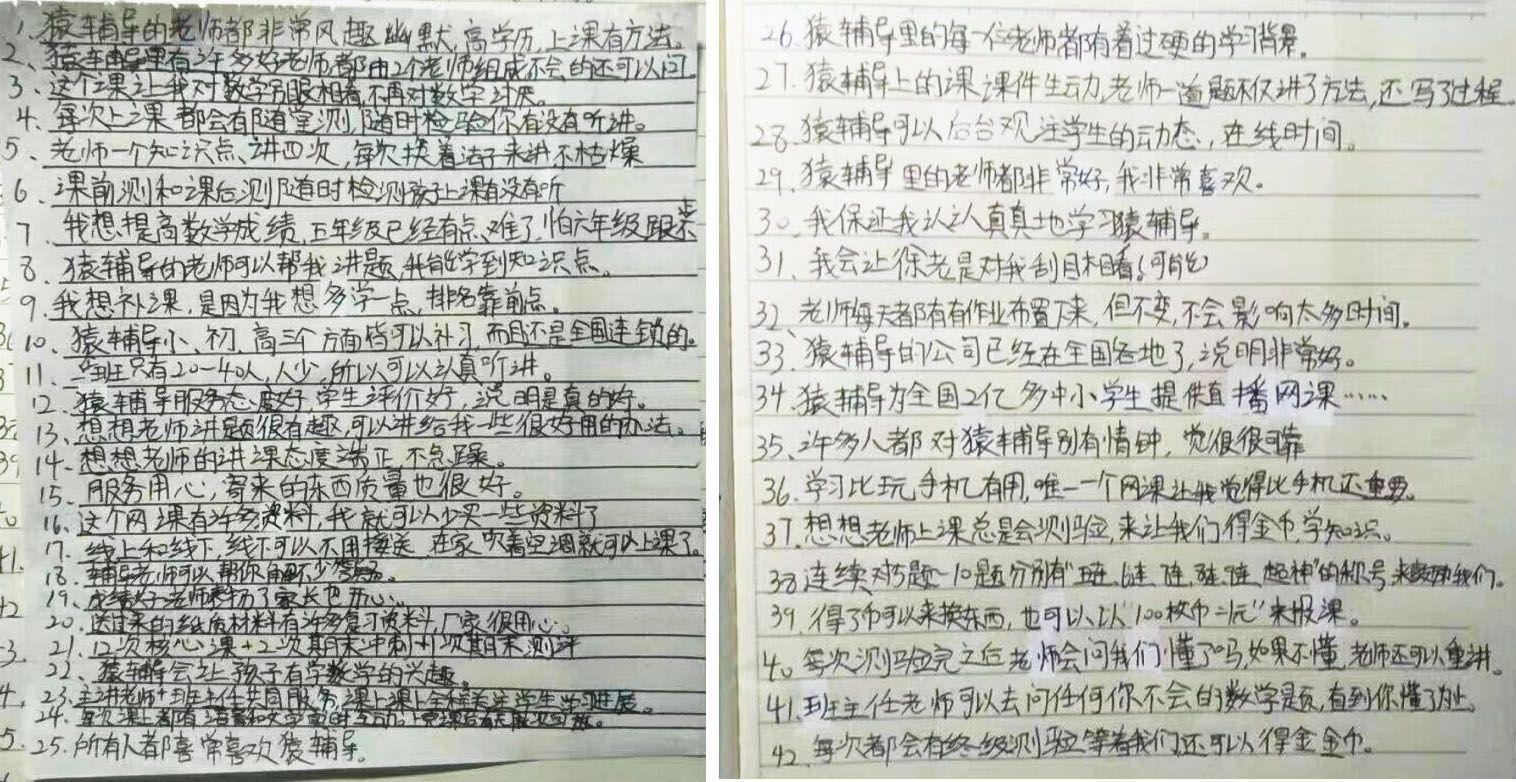 1、猿辅导的老师都非常风趣幽默,高学历,上课有方法。
2、猿辅导里有许多好老师,都由2个老师组成不会的还可以问
3、这个课让我对数学别眼相看,不再对数学讨厌。
4、每次上课都会有随堂测,随时检验你有没有听讲。
5、老师一个知识点、讲四次,每次换着法子来讲不枯燥
6、课前测和课后测随时检测孩子上课有没有听
7、我想提高数学成绩,五年级已经有点难了,怕六年级跟不上
8、猿辅导的老师可以帮我讲题,我能学到知识点。
9、我想补课,是因为我想多学一点,排名靠前点。
10、猿辅导小、初、高三个方面皆可以补习,而且还是全国连锁的。
11、一班只有20-40人,人少,所以可以认真听讲。
12、猿辅导服务态度好,学生评价好,说明是真的好。
13、想想老师讲题很有趣,可以讲给我一些很好用的办法。
14、想想老师的讲课态度端正,不急躁。
15、服务用心,寄来的东西质量也很好。
16、这个网课有许多资料,我就可以少买一些资料了
17、线上和线下,线下可以不用接送,在家吹着空调就可以上课了。
18、辅导老师可以帮你解不少难题。
19、成绩好老师表扬了家长也开心…
20、送过来的纸质材料有许多复习资料,厂家很用心。
21、12次核心课+2次期末冲刺+1次期末测评
22、猿辅导会让孩子有学数学的兴趣。
23、主讲老师+班主任共同服务,课上课上全程关注学生学习进展。
24、每次课上都有语音和文字实时互动,上完课后有无限次回放。
25、所有人都喜常喜欢猿辅导。
26、猿辅导里的每一位老师都有着过硬的学习背景。
27、猿辅导上的课课件生动,老师一道题不仅讲了方法,还写了过程。
28、猿辅导可以后台观注学生的动态,在线时间。
29、猿辅导里的老师都非常好,我非常喜欢。
30、我保证我认认真真地学习猿辅导。
31、我会让徐老是对我刮目相看!(可能)
32、老师每天都有有作业布置下来,但不变,不会影响太多时间。
33、猿辅导的公司已经在全国各地了,说明非常好。
34、猿辅导为全国2亿多中小学生提供直播网课……
35、许多人都对猿辅导别有情钟,觉很很可靠
36、学习比玩手机有用,唯一一个网课让我觉得比手机还重要。
37、想想老师上课总是会测验,来让我们得金币,学知识。
38、连续对5题~10题分别有"五连、6连、7连、8连、9连、超神"的称号来鼓励我们。
39、得了币可以来换东西,也可以以"100枚币=1元"来报课。
40、每次测验完之后老师会问我们懂了吗,如果不懂,老师还可以重讲。
41、班主任老师可以去问任何你不会的数学是页,直到你懂了为止。
42、每次都会有终级测验等着我们,还可以得金金币。